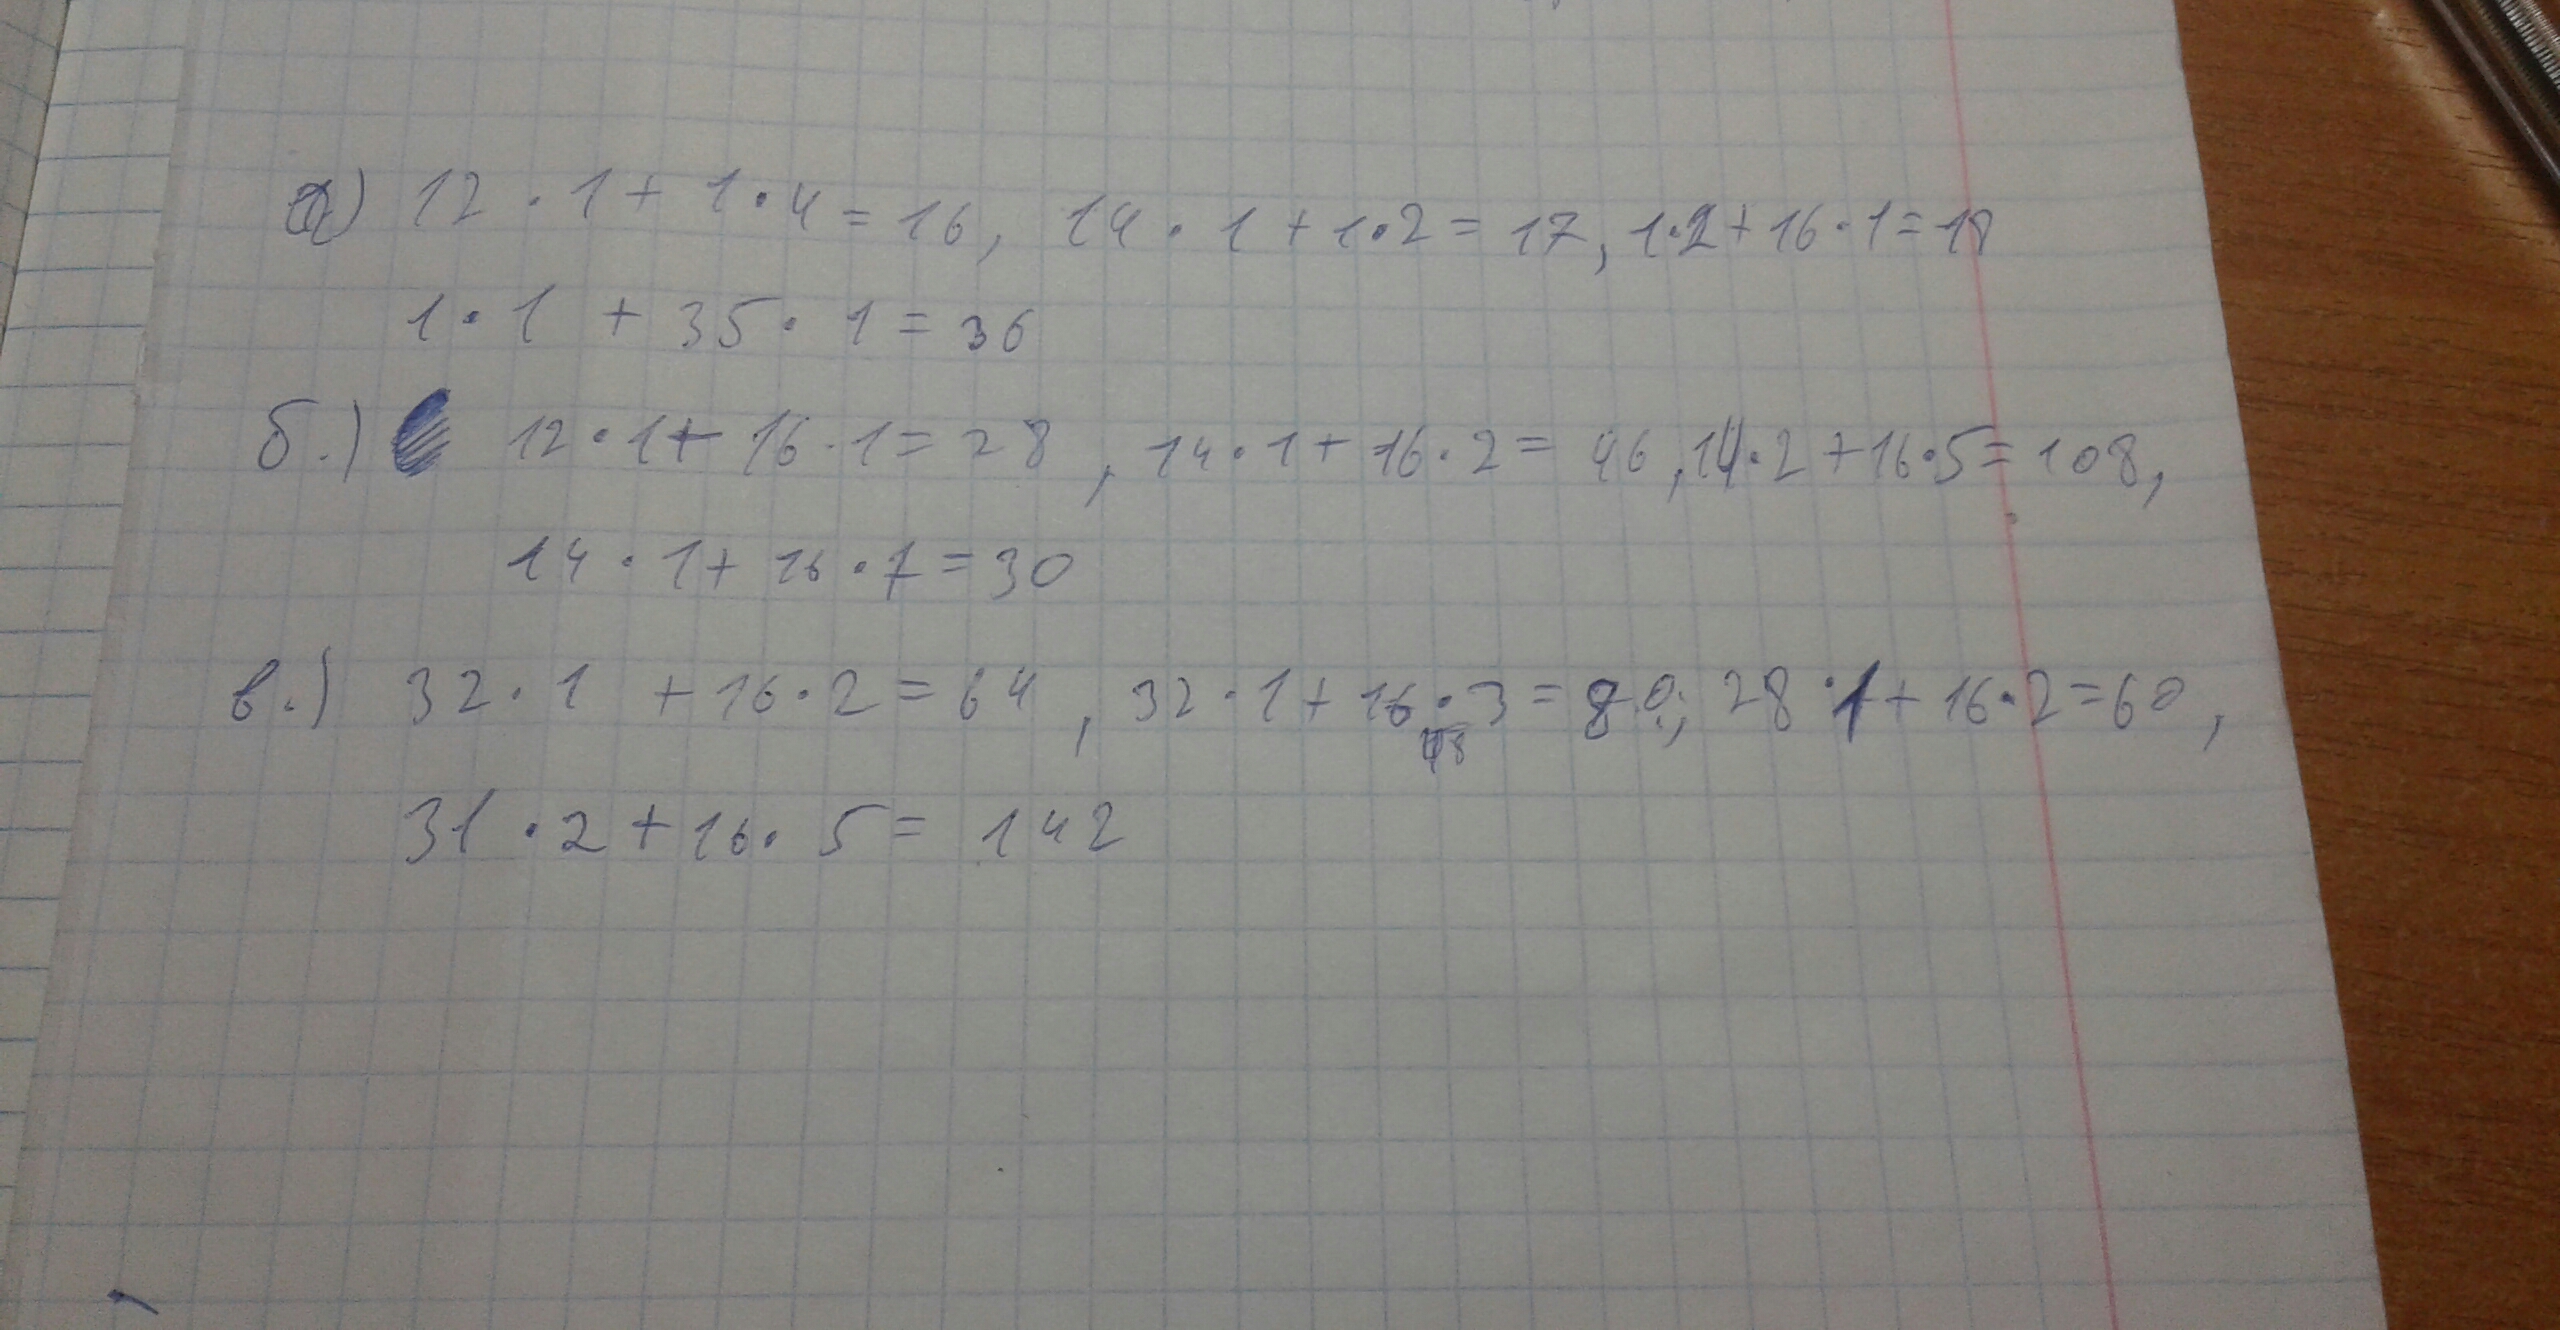 а) 12 · 1 + 1 · 4 = 16, 14 · 1 + 1 · 2 = 17, 1 · 2 + 16 · 1 = 18
1 · 1 + 35 · 1 = 36
б.) 12 · 1 + 16 · 1 = 28, 14 · 1 + 16 · 2 = 46, 14 · 2 + 16 · 5 = 108,
14 · 1 + 16 · 1 = 30
в.) 32 · 1 + 16 · 2 = 64, 32 · 1 + 16 · 3 = 80; 28 · 1 + 16 · 2 = 60,
48
31 · 2 + 16 · 5 = 142